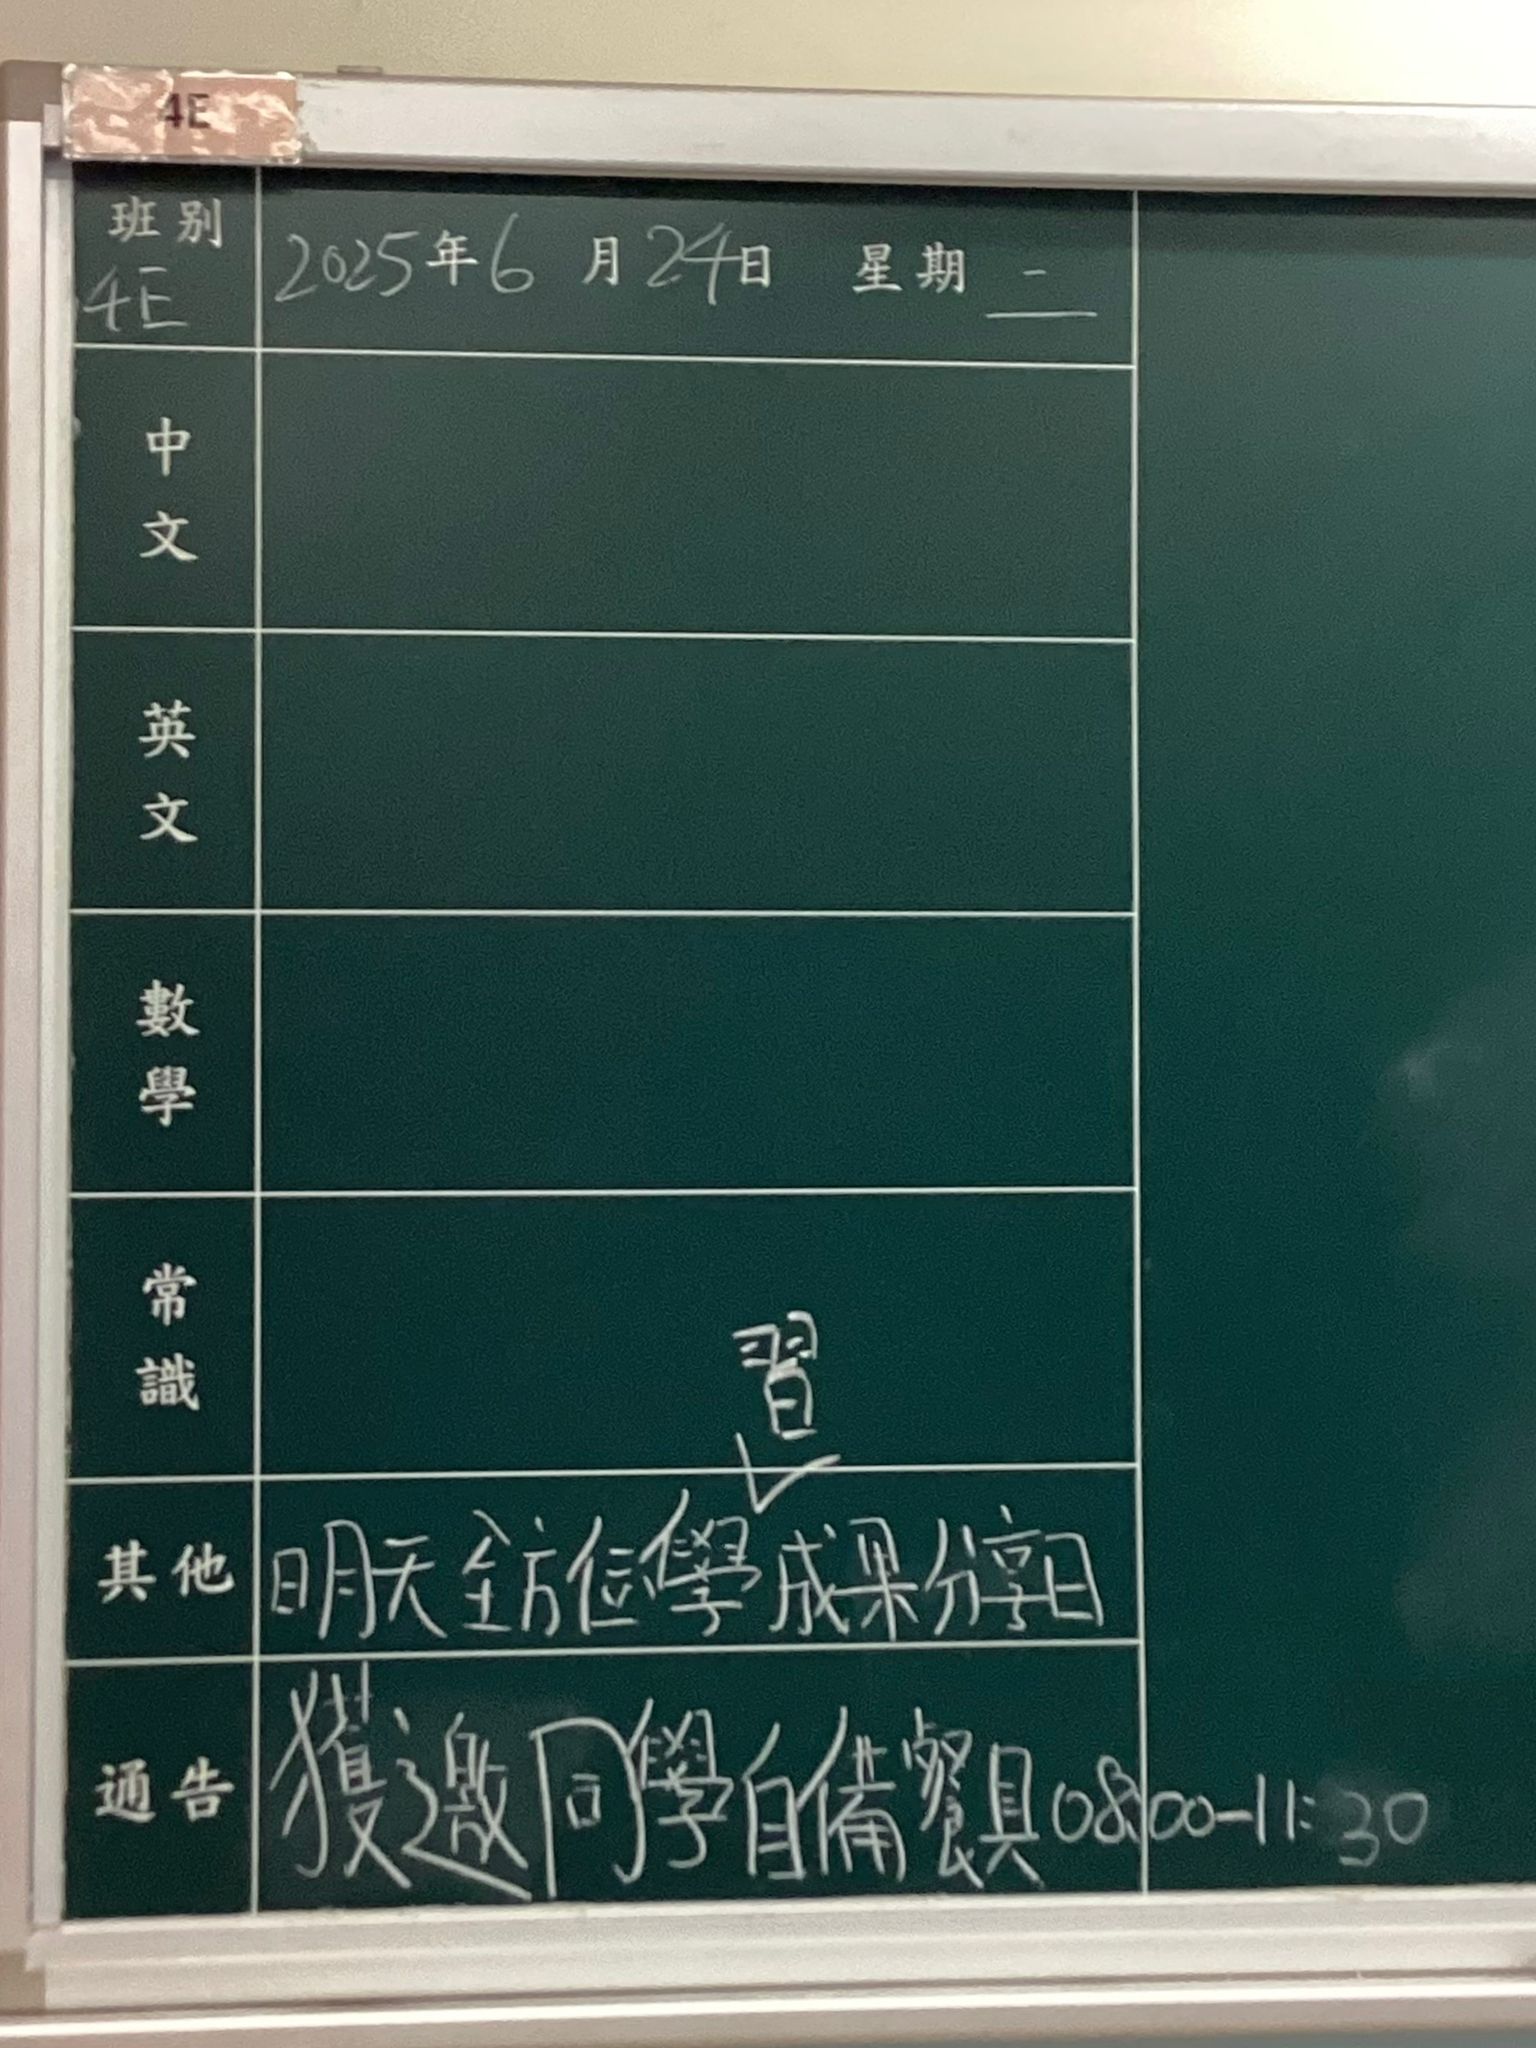 4E
班別 4E
2025年6月24日 星期二
中文
英文
數學
常識
習
其他 明天全方位學成果分享日
通告 獲邀同學自備餐具08:00-11:30